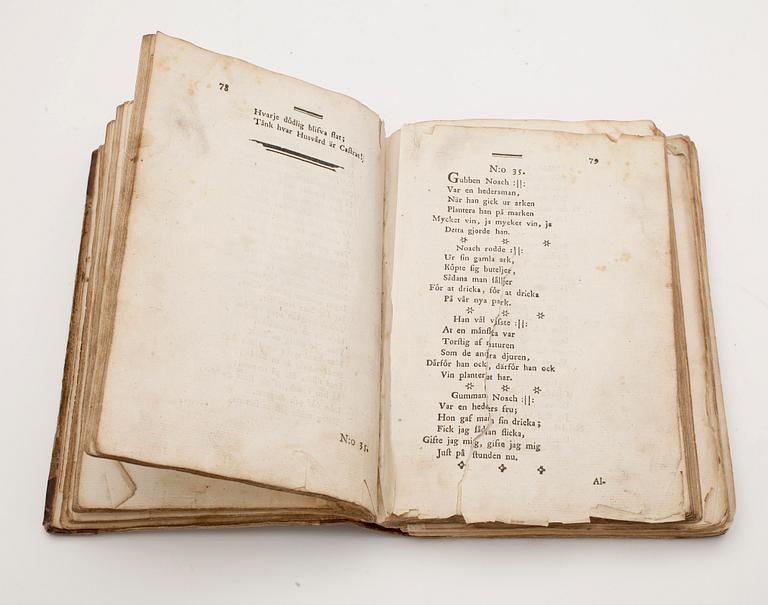 78
Hvarje dödlig blifva ſlat;
Tänk hvar Husvård är Caſtrat!
N:o 35.
79
N:o 35.
Gubben Noach :||:
Var en hedersman,
När han gick ur arken
Plantera han på marken
Mycket vin, ja mycket vin, ja
Detta gjorde han.
Noach rodde :||:
Ur ſin gamla ark,
Köpte ſig buteljer,
Sådana man ſäljer
För at dricka, för at dricka
På vår nya park.
Han väl viſste :||:
At en månſka var
Torſtig af naturen
Som de andra djuren,
Därför han ock, därför han ock
Vin planterat har.
Gumman Noach :||:
Var en heders fru;
Hon gaf man ſin dricka;
Fick jag ſådan flicka,
Gifte jag mig, gifte jag mig
Juſt på ſtunden nu.
Al-